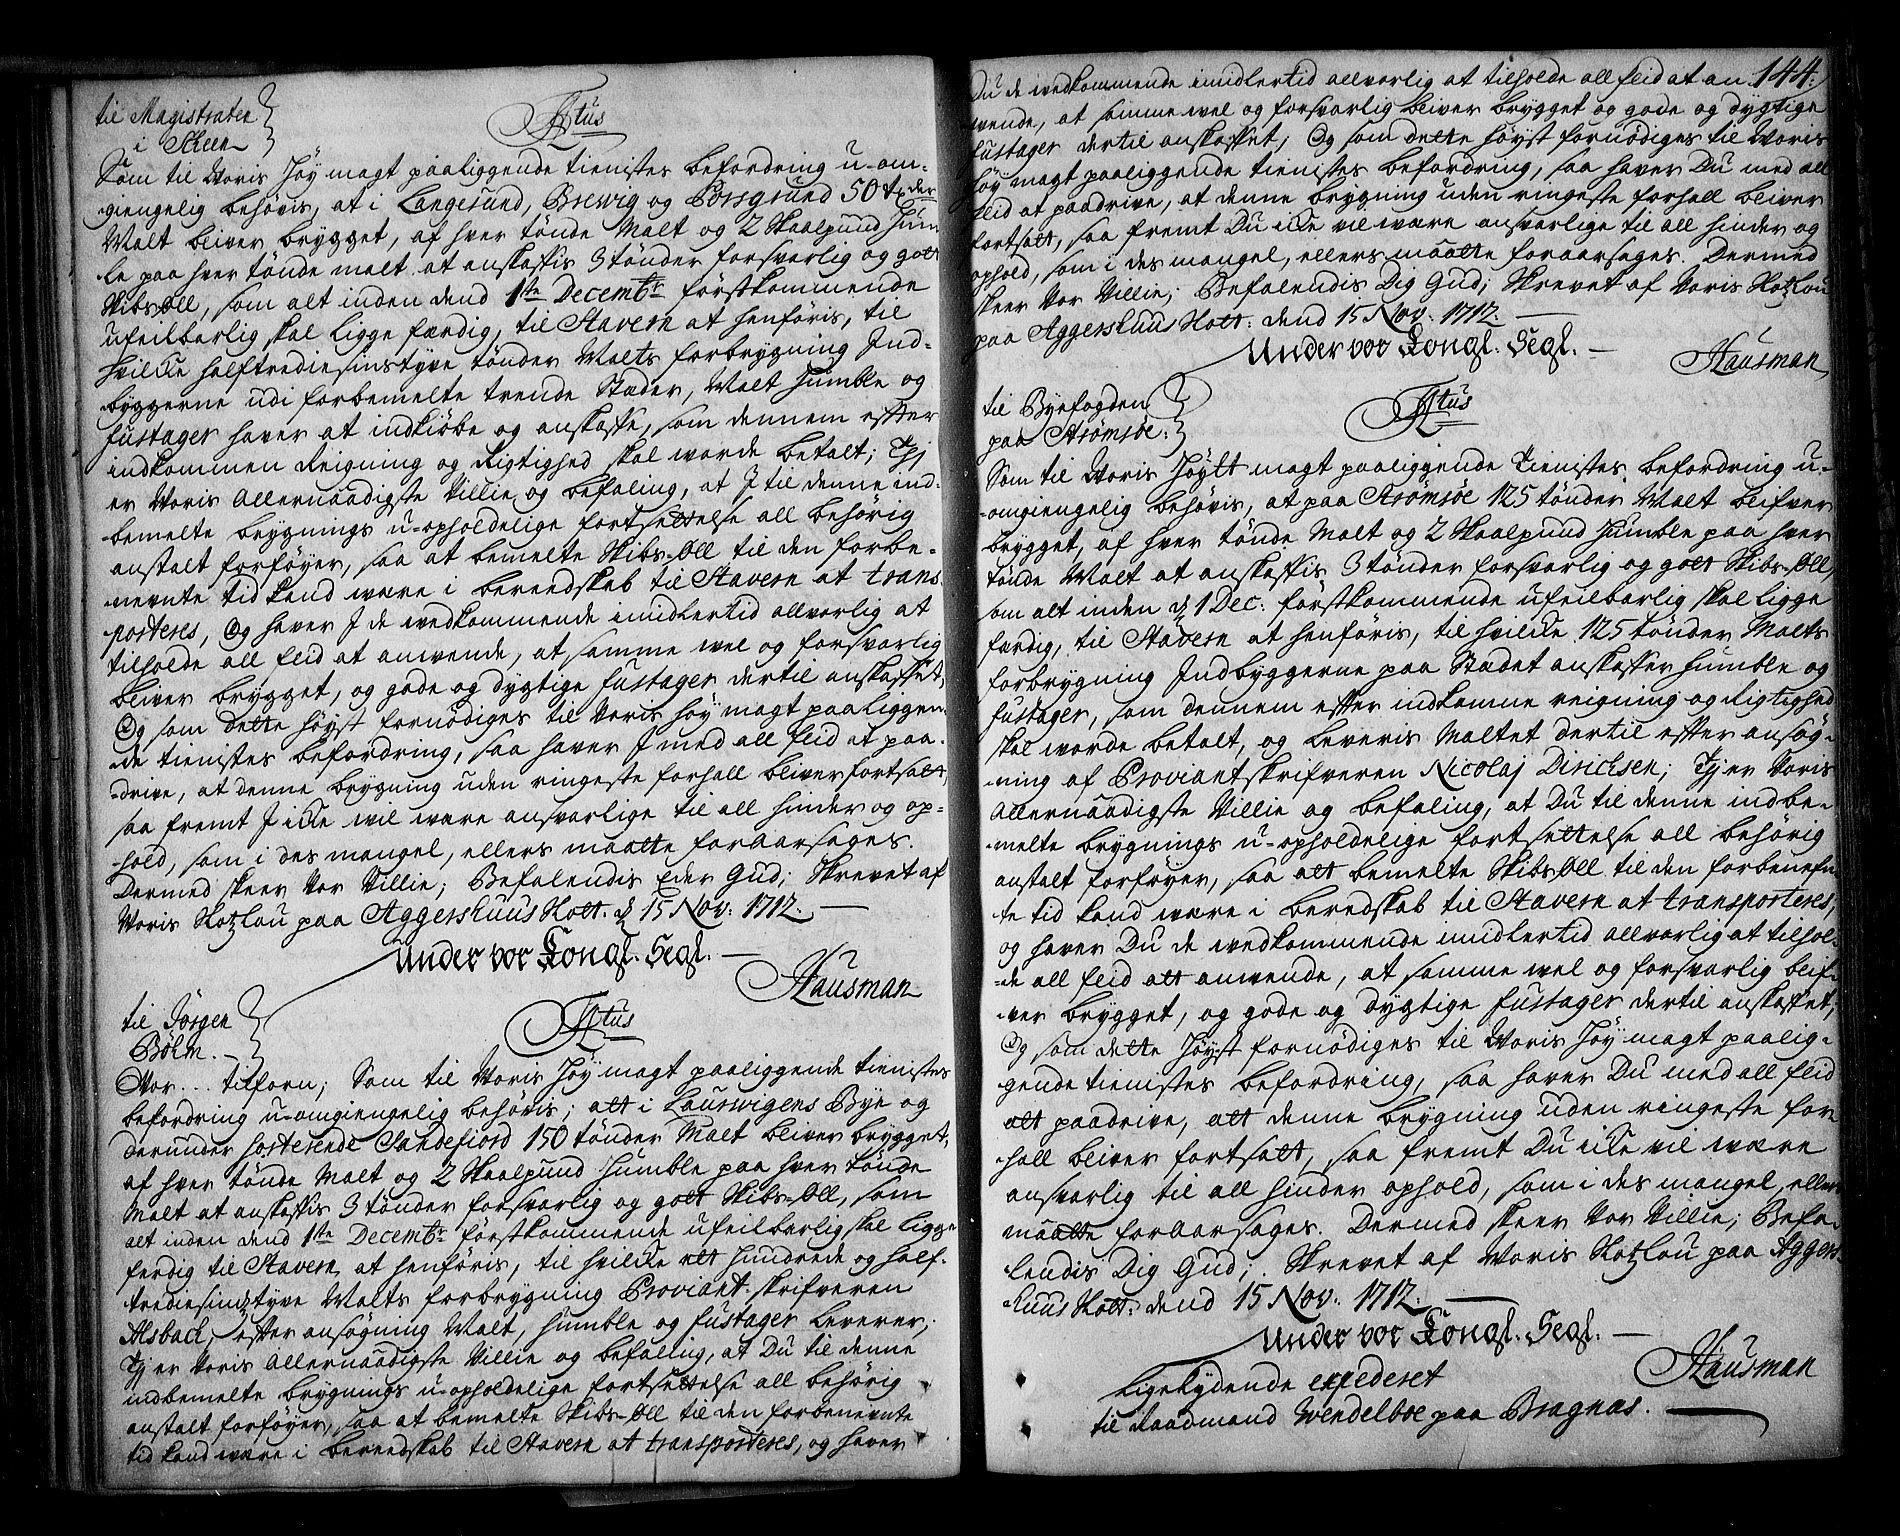 til Magistraten
i Skeen
Ftus
Som til Voris Høy magt paaliggende tienistes befordring u-om-
giengelig behøvis, at i Langesund, Brewig og Porsgrund 50 tr der
Malt bliver brygget, af hver tønde Malt og 2 Skaalpund Hum-
le paa hver tønde malt at anskaffis 3 tønder forsvarlig og got
Skibs-Øll, som alt inden dend 1ste Decembr førstkommende
ufeilbarlig skal ligge færdig, til Stavern at henføris, til
hvilcke halftrediesinstyve tønder Malts forbrygning Ind-
byggerne udi forbemelte trende Stæder, Malt Humble og
fustager haver at indkiøbe og anskaffe, som dennem efter
indkommen Reigning og Rigtighed skal worde betalt; Thj
er Voris Allernaadigste Villie og befaling, at I til denne ind-
bemelte brygnings u-opholdelige fortsettelse all behørig
anstalt forføyer, saa at bemelte Skibs-Øll til den forbe-
nevnte tid kand være i bereedskab til Stavern at trans-
porteres, Og haver I de wedkommende imidlertid allvorlig at
tilholde all flid at anwende, at samme wel og forsvarlig
bliver brygget, og gode og dygtige fustager dertil anskaffet,
Og som dette høyst fornødiges til Voris høy magt paaliggen-
de tienistes befordring, saa haver I med all flid at paa-
drive, at denne brygning uden ringeste forhall bliver fortsatt,
saa fremt I icke wil være ansvarlige til all hinder og op-
hold, som i des mangel, ellers maatte foraarsages.
Dermed skeer Vor Villie; Befalendis Eder Gud; Skrevet af
Voris Slotzlou paa Aggershuus Slott. d 15 Nov: 1712.
Under vor Kongl. Segl.
Hausman
til Jørgen
Bøhm.
Ftus
Vor... tilforn; Som til Voris Høy magt paaliggende tienistes
befordring u-omgiengelig behøvis; att i Laurwigens Bye og
derunder sorterende Sandefiord 150 tønder Malt bliver brygget,
af hver tønde Malt og 2 Skaalpund Humble paa hver tønde
Malt at anskaffis 3 tønder forsvarlig og gott Skibs-Øll, som
alt inden dend 1ste Decembr førstkommende ufeilbarlig skal ligge
ferdig til Stavern at henføris, til hvilcke ett hundrede og half-
trediesinztyve Malts forbrygning Proviant-skrifveren
Alsback efter ansøgning Malt, Humble og fustager leverer,
Thj er Voris Allernaadigste Villie og befaling, at Du til denne
indbemelte brygnings u-opholdelige fortsettelse all behørig
anstalt forføyer, saa at bemelte Skibs-Øll til den forbenevnte
tid kand være i bereedskab til Stavern at transporteres, og haver
144.
Du de wedkommende imidlertid allvorlig at tilholde all flid at an-
wende, at samme wel og forsvarlig bliver brygget og gode og dygtige
fustager dertil anskaffet; Og som dette høyst fornødiges til Voris
høy magt paaliggende tienistes befordring, saa haver Du med all
flid at paadrive, at denne brygning uden ringeste forhall bliver
fortsatt, saa fremt Du icke vil være ansvarlige til all hinder og
ophold, som i des mangel, ellers maatte foraarsages. Dermed
skeer Vor Villie; Befalendis Dig Gud; Skrevet af Voris Slotzlou
paa Aggershuus Slott: dend 15 Nov. 1712.
Under vor Kongl. Segl.
Hausman
til Byefogden
paa Strømsøe:
Ftus
Som til Voris Høytt magt paaliggende Tienistes befordring u-
omgiengelig behøvis, at paa Strømsøe 125 tønder Malt blifver
brygget, af hver tønde Malt og 2 Skaalpund Humble paa hver
tønde Malt at anskaffis 3 tønder forsvarlig og gott Skibs-Øll,
som alt inden d 1 Dec: førstkommende ufeilbarlig skal ligge
færdig, til Stavern at henføris, til hvilcke 125 tønder Malts
forbrygning Indbyggerne paa Stædet anskaffer Humble og
fustager, som dennem efter indkomne reigning og Rigtighed
skal worde betalt, og leveris Maltet dertil efter ansøg-
ning af Proviantskrifveren Nicolaj Dirichsen; Thj er Voris
Allernaadigste Villie og befaling, at Du til denne indbe-
melte brygnings u-opholdelige fortsettelse all behørig
anstalt forføyer, saa att bemelte Skibs Øll til den forbenefn-
te tid kand være i beredskab til Stavern at transporteres,
og haver Du de wedkommende imidlertid allvorlig at tilhol-
de all flid att anwende, at samme wel og forsvarlig blif-
ver brygget, og gode og dygtige fustager dertil anskaffet;
Og som dette høyst fornødiges til Voris Høy magt paalig-
gende tienistes befordring, saa haver Du med all flid
att paadrive, att denne brygning uden ringeste for-
hall bliver fortsatt, saa fremt Du icke vil være
ansvarlig til all hinder ophold, som i des mangel, ellers
maatte foraarsages. Dermed skeer Vor Villie; Befa-
lendis Dig Gud; Skrevet af Voris Slotzlou paa Aggers-
huus Slott: dend 15 Nov. 1712.
Under vor Kongl. Segl.
Hausman
Ligelydende expederet
til Raadmand Wendelboe paa Bragnæs.